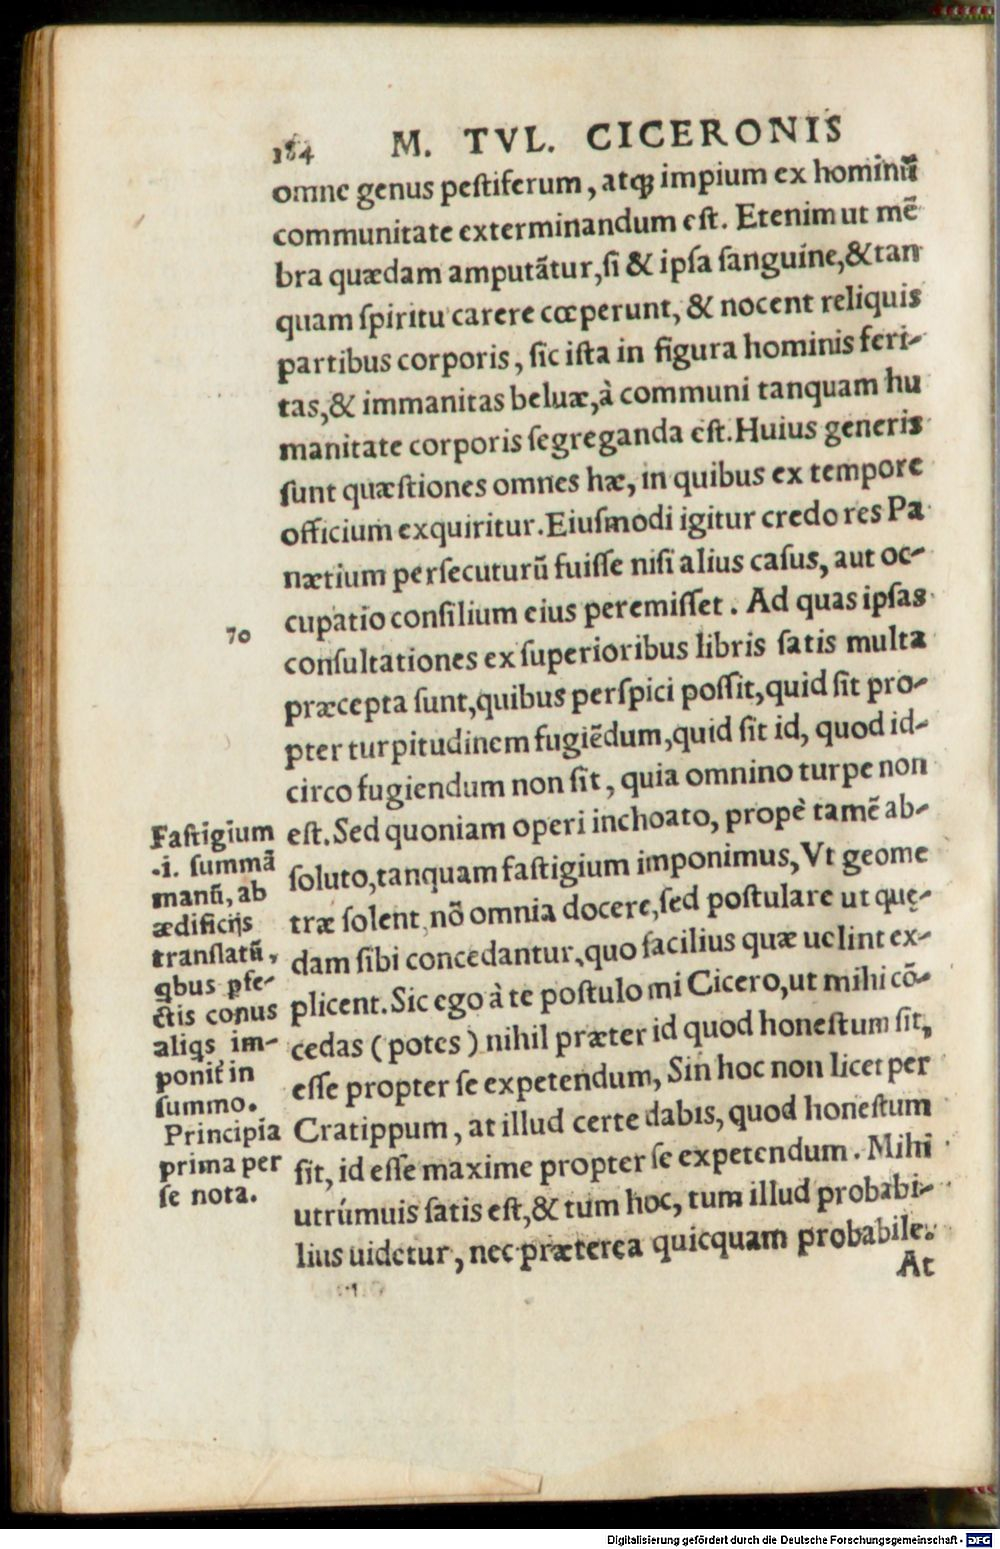 184 M. TVL. CICERONIS
omne genus pestiferum, atq; impium ex hominũ
communitate exterminandum est. Etenim ut mẽ
bra quædam amputãtur, si & ipsa sanguine, & tan
quam spiritu carere cœperunt, & nocent reliquis
partibus corporis, sic ista in figura hominis feri-
tas, & immanitas beluæ, à communi tanquam hu
manitate corporis segreganda est. Huius generis
sunt quæstiones omnes hæ, in quibus ex tempore
officium exquiritur. Eiusmodi igitur credo res Pa
nætium persecuturũ fuisse nisi alius casus, aut oc-
cupatio consilium eius peremisset. Ad quas ipsas
70
consultationes ex superioribus libris satis multa
præcepta sunt, quibus perspici possit, quid sit pro-
pter turpitudinem fugiẽdum, quid sit id, quod id-
circo fugiendum non sit, quia omnino turpe non
est. Sed quoniam operi inchoato, propè tamẽ ab-
soluto, tanquam fastigium imponimus, Vt geome
træ solent, nõ omnia docere, sed postulare ut quę-
dam sibi concedantur, quo facilius quæ uelint ex-
plicent. Sic ego à te postulo mi Cicero, ut mihi cõ-
cedas (potes) nihil præter id quod honestum sit,
esse propter se expetendum, Sin hoc non licet per
Cratippum, at illud certe dabis, quod honestum
sit, id esse maxime propter se expetendum. Mihi
utrúmuis satis est, & tum hoc, tum illud probabi-
lius uidetur, nec præterea quicquam probabile.
At
Fastigium
.i. summã
manũ, ab
ædificijs
translatũ,
qbus pfe-
ctis conus
aliqs im-
ponit in
summo.
Principia
prima per
se nota.
Digitalisierung gefördert durch die Deutsche Forschungsgemeinschaft - DFG